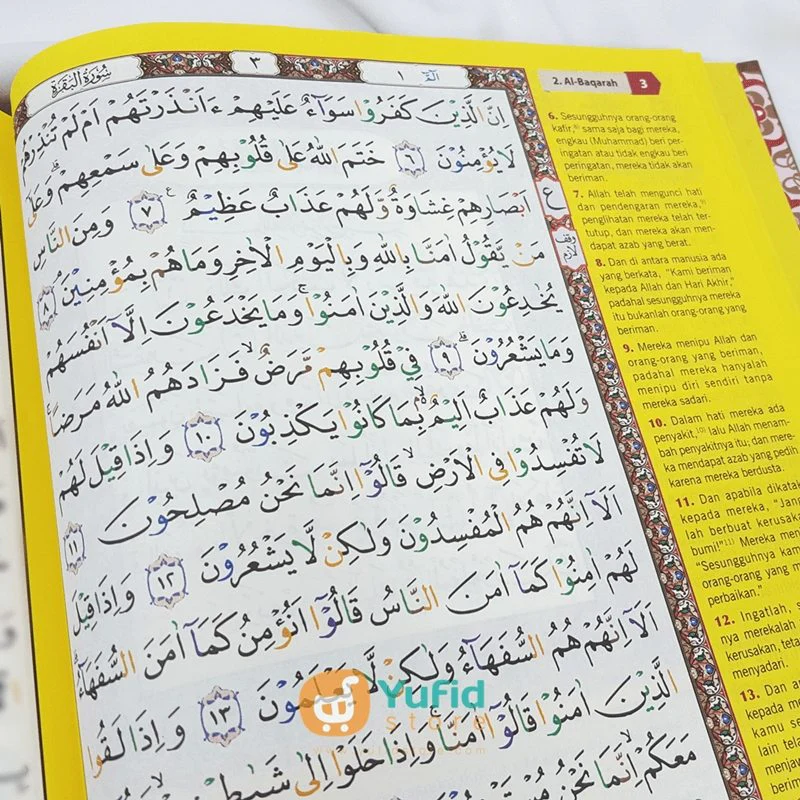 سُورَةُ الْبَقَرَةِ
٣
الٓمّٓ ١
اِنَّ الَّذِيْنَ كَفَرُوْا سَوَآءٌ عَلَيْهِمْ ءَاَنْذَرْتَهُمْ اَمْ لَمْ تُنْذِرْهُمْ
لَا يُؤْمِنُوْنَ ٦ خَتَمَ اللّٰهُ عَلٰى قُلُوْبِهِمْ وَعَلٰى سَمْعِهِمْ ۗ وَعَلٰٓى
اَبْصَارِهِمْ غِشَاوَةٌ وَّلَهُمْ عَذَابٌ عَظِيْمٌ ٧ وَمِنَ النَّاسِ
مَنْ يَّقُوْلُ اٰمَنَّا بِاللّٰهِ وَبِالْيَوْمِ الْاٰخِرِ وَمَا هُمْ بِمُؤْمِنِيْنَ ۘ ٨
يُخٰدِعُوْنَ اللّٰهَ وَالَّذِيْنَ اٰمَنُوْا ۚ وَمَا يَخْدَعُوْنَ اِلَّآ اَنْفُسَهُمْ
وَمَا يَشْعُرُوْنَ ۗ ٩ فِيْ قُلُوْبِهِمْ مَّرَضٌ ۙ فَزَادَهُمُ اللّٰهُ مَرَضًا ۚ
وَلَهُمْ عَذَابٌ اَلِيْمٌ ۢ ۙ بِمَا كَانُوْا يَكْذِبُوْنَ ١٠ وَاِذَا قِيْلَ لَهُمْ
لَا تُفْسِدُوْا فِى الْاَرْضِ ۙ قَالُوْٓا اِنَّمَا نَحْنُ مُصْلِحُوْنَ ١١
اَلَآ اِنَّهُمْ هُمُ الْمُفْسِدُوْنَ وَلٰكِنْ لَّا يَشْعُرُوْنَ ١٢ وَاِذَا قِيْلَ
لَهُمْ اٰمِنُوْا كَمَآ اٰمَنَ النَّاسُ قَالُوْٓا اَنُؤْمِنُ كَمَآ اٰمَنَ السُّفَهَاۤءُ ۗ
اَلَآ اِنَّهُمْ هُمُ السُّفَهَاۤءُ وَلٰكِنْ لَّا يَعْلَمُوْنَ ١٣ وَاِذَا لَقُوا
الَّذِيْنَ اٰمَنُوْا قَالُوْٓا اٰمَنَّا ۚ وَاِذَا خَلَوْا اِلٰى شَيٰطِيْنِهِمْ
مَعَكُمْ ۙ اِنَّمَا نَحْنُ
ع
وقف
لازم
2. Al-Baqarah 3
6. Sesungguhnya orang-orang
kafir, sama saja bagi mereka,
engkau (Muhammad) beri per-
ingatan atau tidak engkau beri
peringatan, mereka tidak akan
beriman.
7. Allah telah mengunci hati
dan pendengaran mereka,
penglihatan mereka telah ter-
tutup, dan mereka akan men-
dapat azab yang berat.
8. Dan di antara manusia ada
yang berkata, "Kami beriman
kepada Allah dan Hari Akhir,"
padahal sesungguhnya mereka
itu bukanlah orang-orang yang
beriman.
9. Mereka menipu Allah dan
orang-orang yang beriman,
padahal mereka hanyalah
menipu diri sendiri tanpa
mereka sadari.
10. Dalam hati mereka ada
penyakit,10) lalu Allah menam-
bah penyakitnya itu; dan mere-
ka mendapat azab yang pedih
karena mereka berdusta.
11. Dan apabila dikata
kepada mereka, "Jang
lah berbuat kerusaka
bumi!"11) Mereka men
"Sesungguhnya kam
orang-orang yang m
perbaikan."
12. Ingatlah, s
nya merekalah
kerusakan, teta
menyadari.
13. Dan a
kepada me
kamu se
lain tela
menjaw
berim
Yufid
store